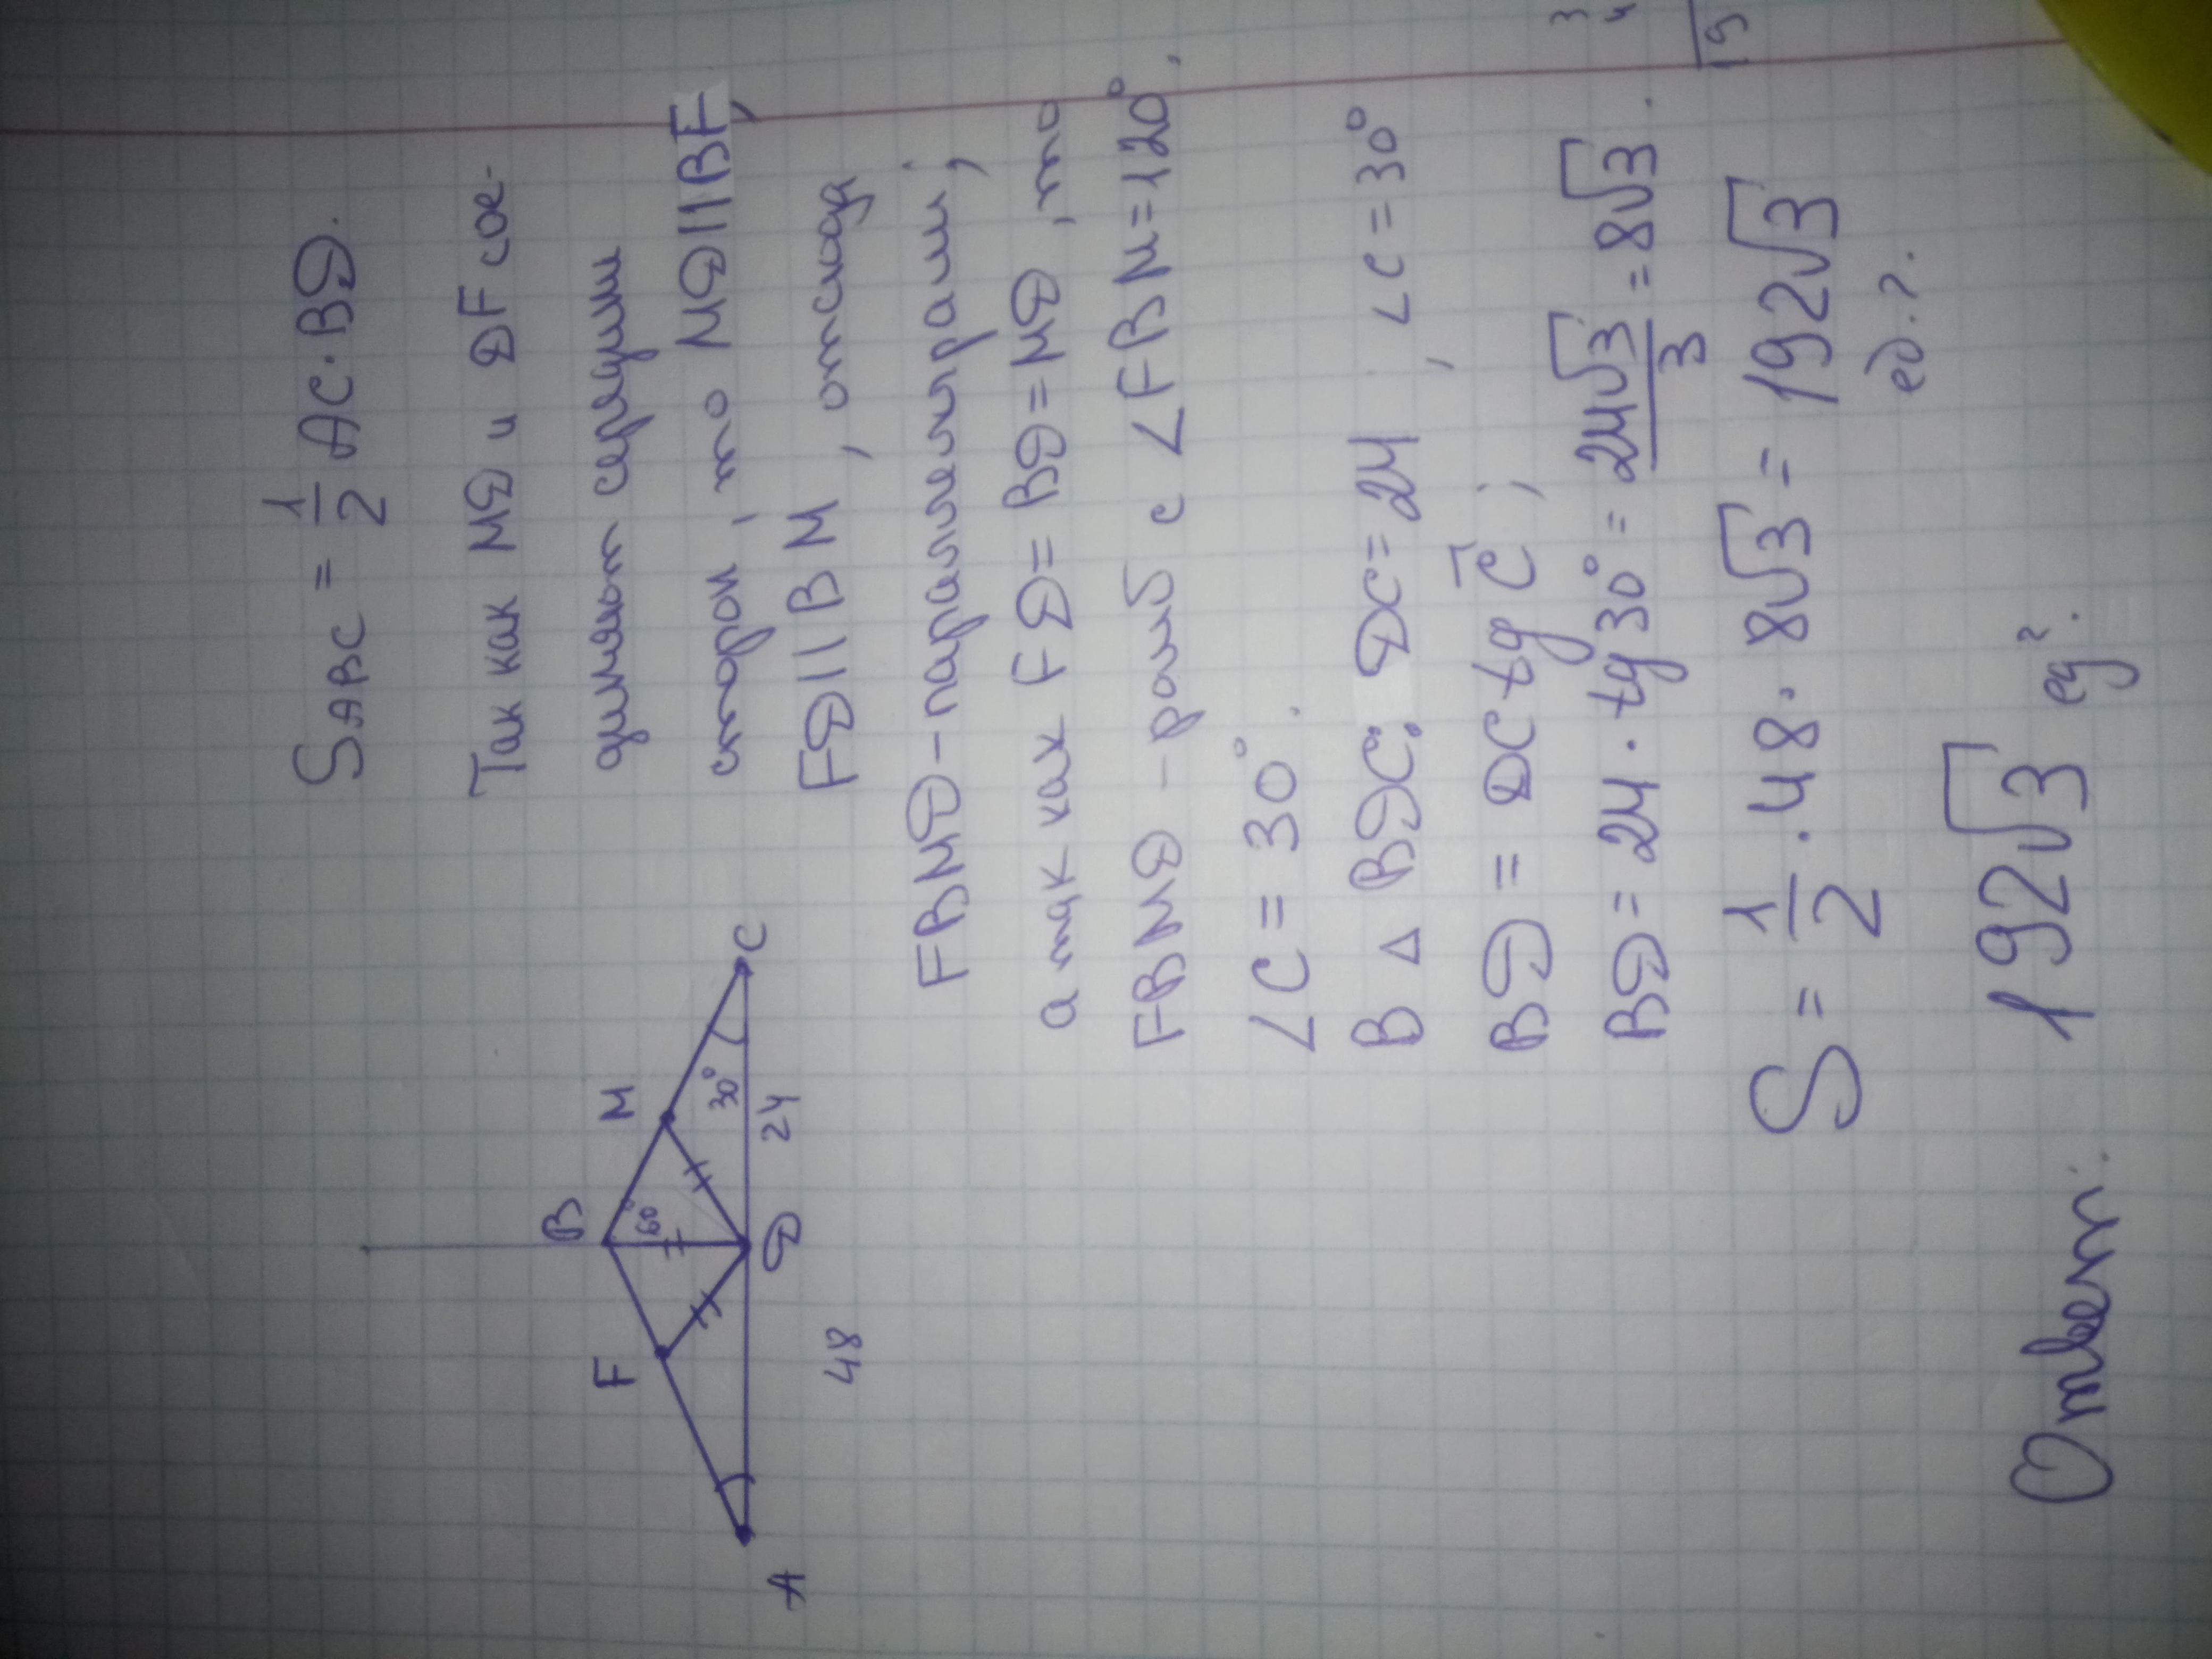 S ABC = 1/2 AC·BD.
Так как MD и DF сое-
диняют середины
сторон, то MD||BF,
FD||BM, отсюда
FBMD-параллелеграмм;
а так как FD=BD=MD, то
FBMD - ромб с ∠FBM=120°,
∠C=30°.
В △ BDC: DC=24, ∠C=30°
BD = DC tg C;
BD=24·tg30°=24√3/3=8√3.
S=1/2·48·8√3=192√3
ед.².
Ответ: 192√3 ед².
B
F
M
60°
30°
A
D
24
C
48
3
4
19